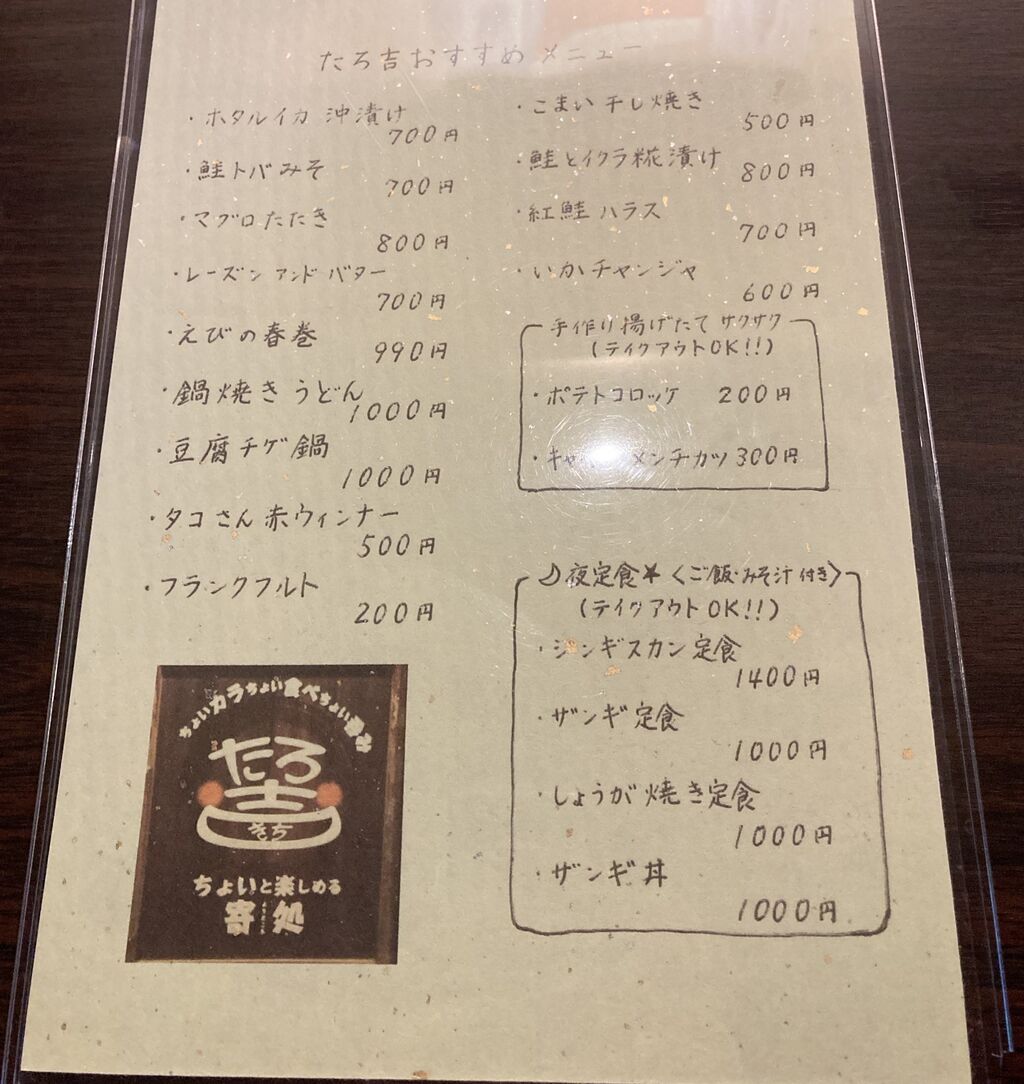 たろ吉おすすめメニュー
・ホタルイカ 沖漬け
700円
・鮭トバみそ
700円
・マグロたたき
800円
・レーズン アンド バター
700円
・えびの春巻
990円
・鍋焼きうどん
1000円
・豆腐チゲ鍋
1000円
・タコさん赤ウィンナー
500円
・フランクフルト
200円
・こまい干し焼き
500円
・鮭とイクラ糀漬け
800円
・紅鮭ハラス
700円
・いかチャンジャ
600円
手作り揚げたて サクサク
(テイクアウトOK!!)
・ポテトコロッケ 200円
メンチカツ 300円
夜定食 〈ご飯・みそ汁付き〉
(テイクアウトOK!!)
・ジンギスカン定食
1400円
・ザンギ定食
1000円
・しょうが焼き定食
1000円
・ザンギ丼
1000円
ちょいカラちょい食べちょい呑み
たろ
吉
そち
ちょいと楽しめる
寄処